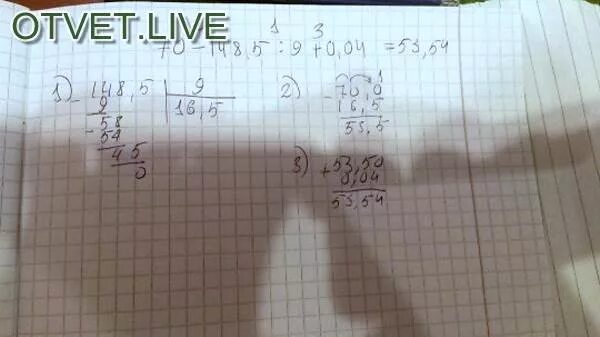 OTVET.LIVE
1 3
70 - 148,5 : 9 + 0,04 = 53,54
1) - 148,5 | 9
9 16,5
- 58
54
45
0
2) - 70,0
16,5
53,5
3) + 53,50
0,04
53,54